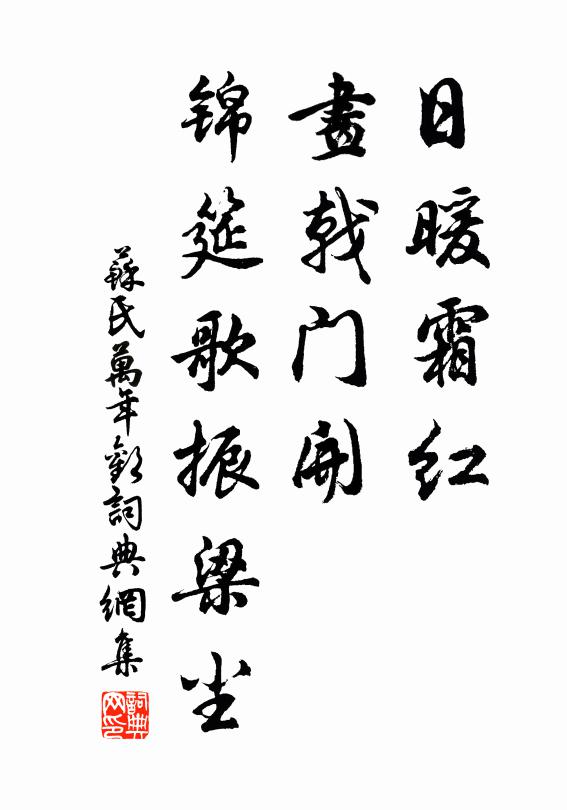 日暖霜红
畫戟门開
锦筵歌振梁尘
蘇氏萬年歡詞典網集
詞典網印